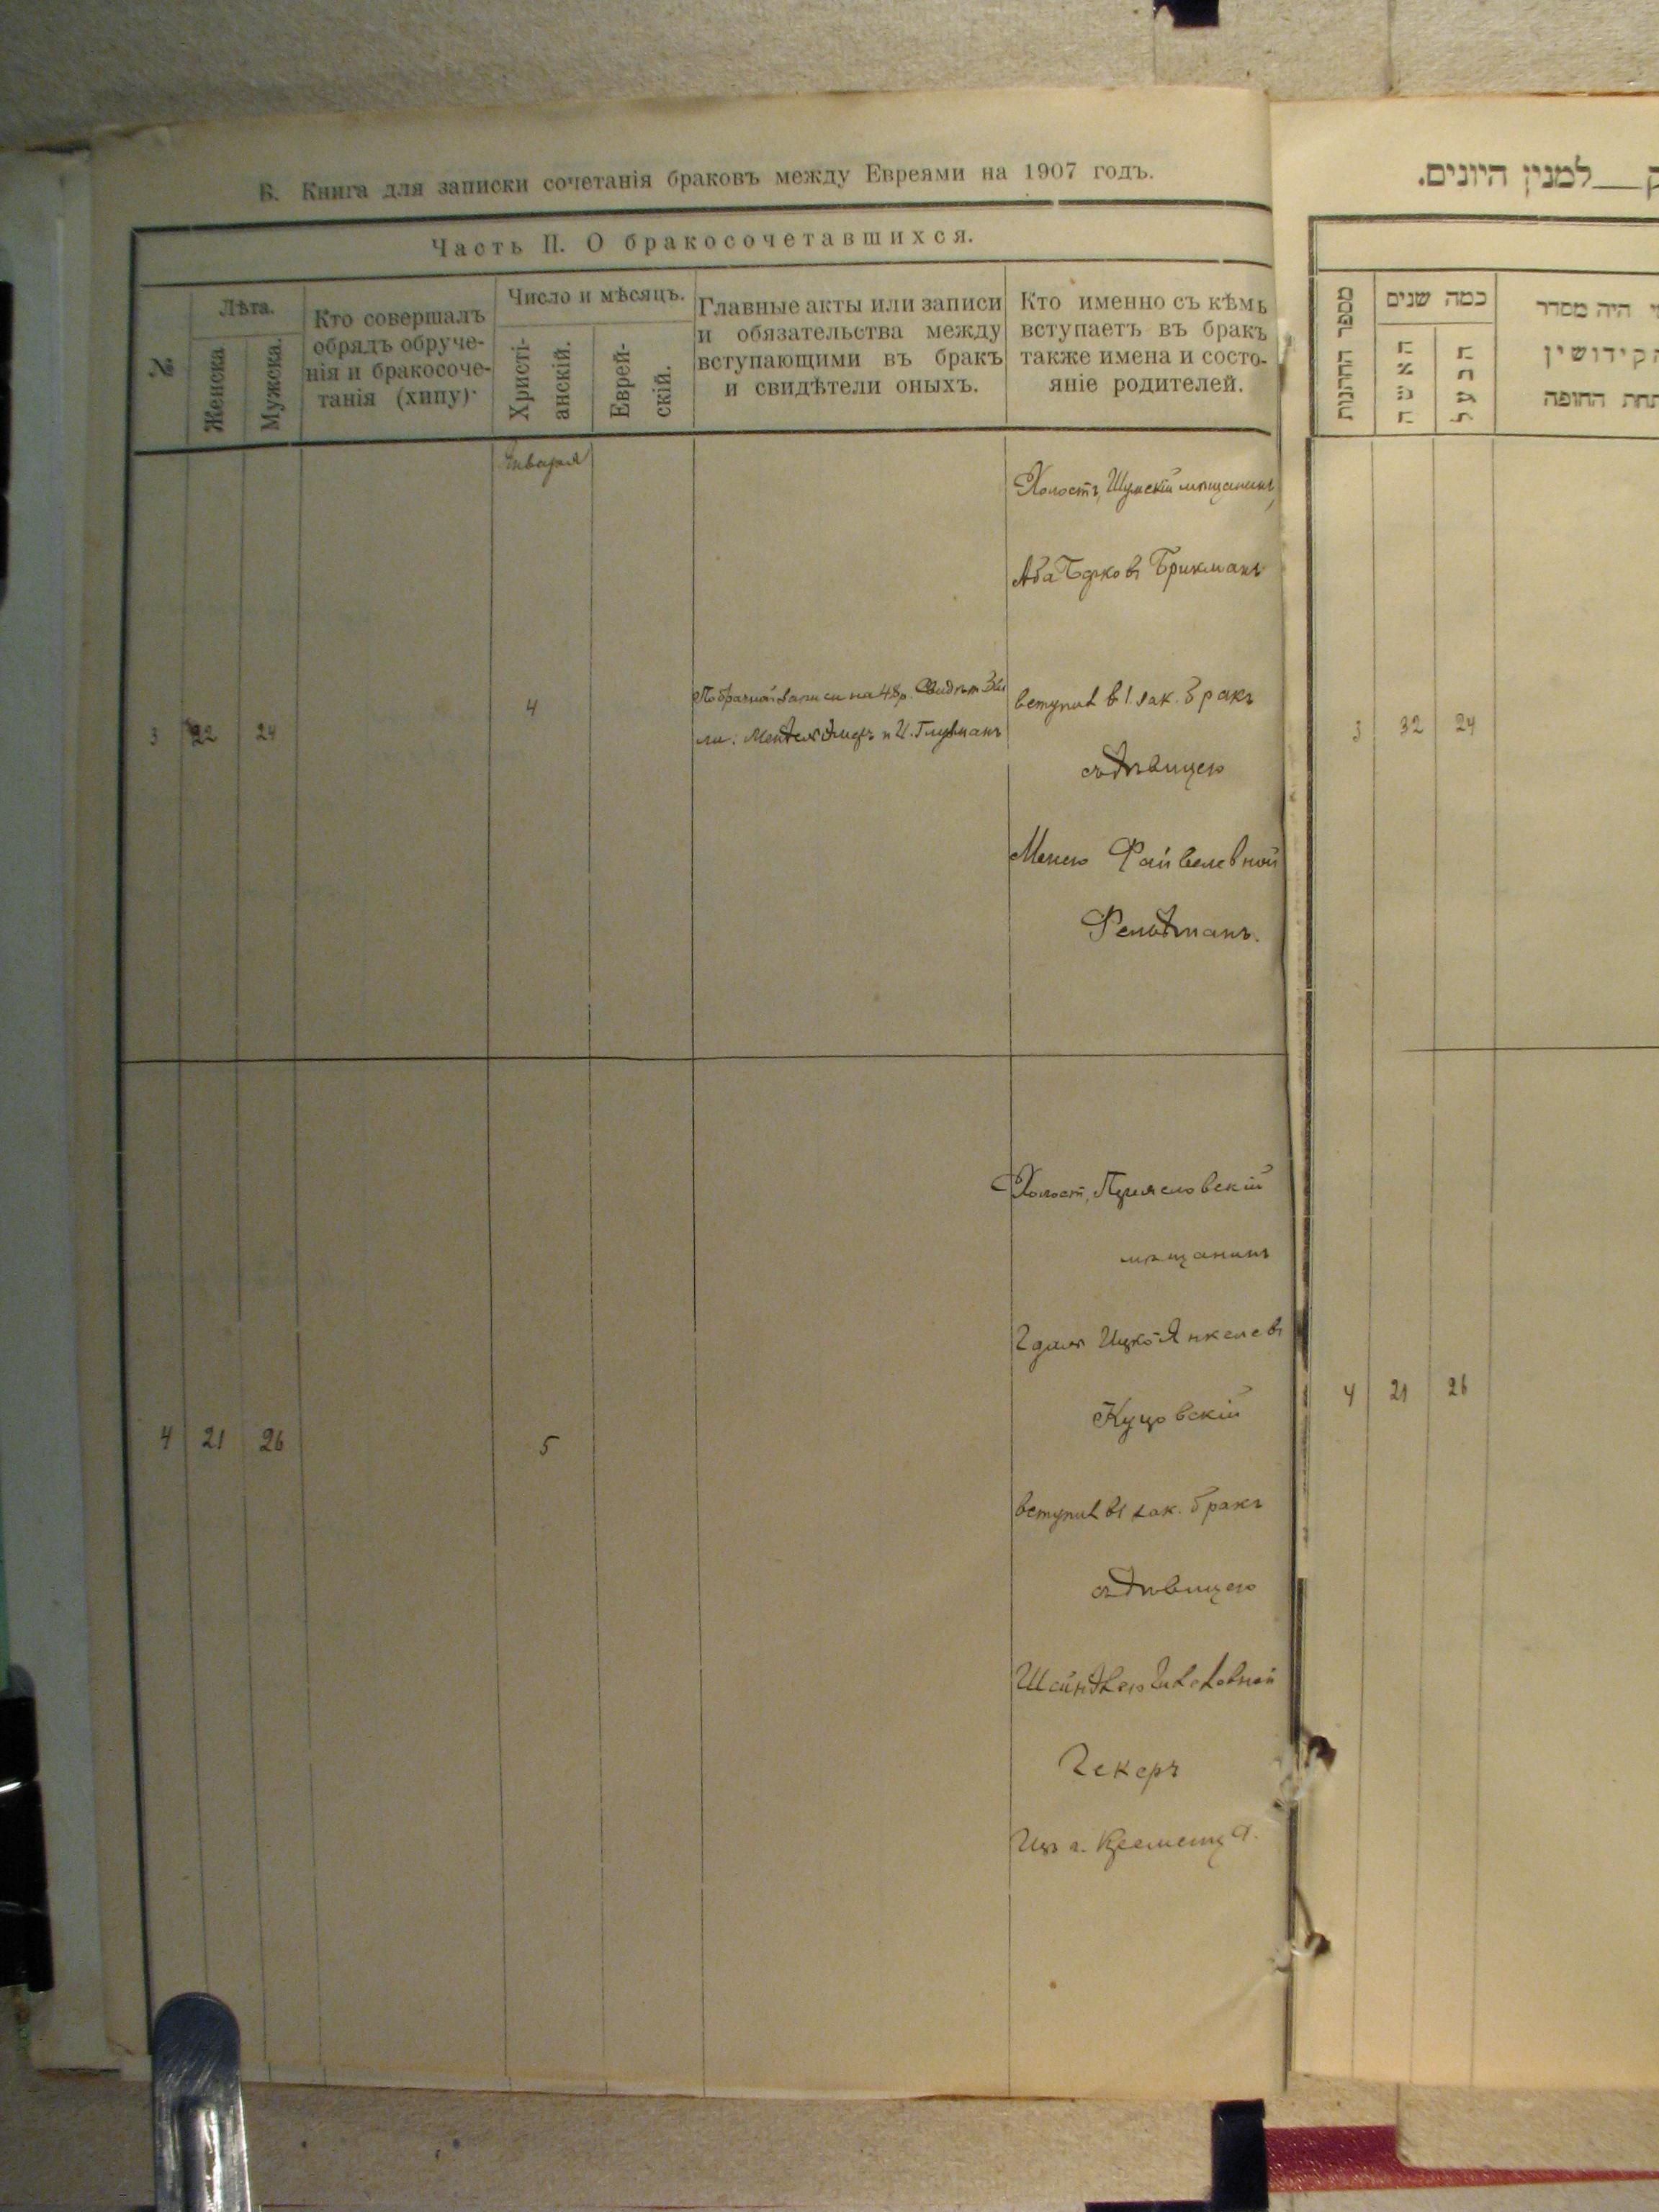 Б. Книга для записки сочетанія браковъ между Евреями на 1907 годъ.
Часть II. О бракосочетавшихся.
№
Лѣта.
Женска
Мужска.
Кто совершалъ
обрядъ обруче-
нія и бракосоче-
танія (хипу)
Число и мѣсяцъ.
Христі-
анскій.
Еврей-
скій.
Главные акты или записи
и обязательства между
вступающими въ бракъ
и свидѣтели оныхъ.
Кто именно съ кѣмъ
вступаетъ въ бракъ
также имена и состо-
яніе родителей.
Января
3 22 24
4
По брачной записи на 48 р. Свидѣт
и И. Глузманъ
Холостъ, Шумскій мѣщанинъ,
Аба Берковъ Брикманъ
вступил в 1. зак. бракъ
съ дѣвицею
Менею Файвелевной
Фельдманъ.
4 21 26
5
Холост,
мѣщанинъ
Ицко-Янкелевъ
Куцовскій
вступил въ зак. бракъ
съ дѣвицею
Шейндлею
Гекеръ
Изъ г. Кременца.
למנין היונים.
מספר החתנות
כמה שנים
האשה
הבעל
מי היה מסדר
הקידושין
תחת החופה
3 32 24
4 21 26